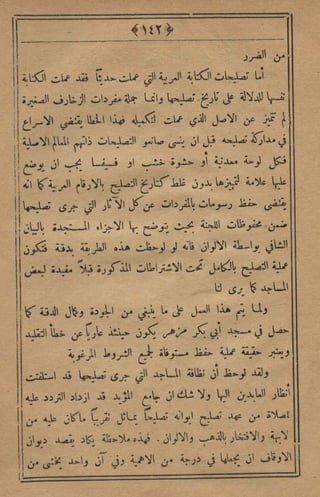 ﴿١٤٢﴾
من الضرر
أما تصليحات الكتابة العربية التي عملت حديثاً فقد عملت الكتابة
نفسها للدلالة على تاريخ تصليحها وانما جملة مفردات الزخارف الصغيرة
لم تتميز عن الاصل الذي عملت لتكميله فهذا الخطا يقتضي الاسراع
في مداركة تصليحه قبل ان ينسى صانعو التصليحات ذاتهم المعالم الاصلية
فكل لوحة معدنية أو حشوة خشب او فسيفسا يجب ان يوضع
عليها علامة لتميزها بدون غلط كتاريخ التصليح بالارقام العربية كما انه
يقتضى حفظ رسومات بالمفردات عن كل الآثار التي جرى تصليحها
ضمن محفوظات اللجنة بحيث يتوضح بها الاجزاء المستجدة بالبيان
الشافي بواسطة الالوان فانه لو لوحظت هذه الطريقة بدقة فتكون
عملية التصليح بالكامل تحت الاشتراطات المذكورة قبلاً مفيدة لبعض
المساجد كما يرى لنا
ولما يتم هذا العمل على ما ينبغي من الجودة وكمال الدقة كما
حصل في مسجد أبي بكر مزهر يكون حينئذ عارياً عن خطأ التقليد
ويعتبر حقيقة عملية حفظ مستوفاة لجميع الشروط المرغوبة
ولقد لوحظ أن نظافة المساجد التي جرى تصليحها قد استلفتت
أنظار العابدين اليها ولا شك ان جامع المؤيد قد ازداد التردد عليه
للصلاة من عهد تصليح ايوانه تصليحاً يماثل تقريباً ما كان عليه من
الابهة والافتخار بالذهب والالوان . فهذه ملاحظة يكاد يقصد ديوان
الاوقاف ان يجعلها في درجة من الاهمية وفي آن واحد يخشى من